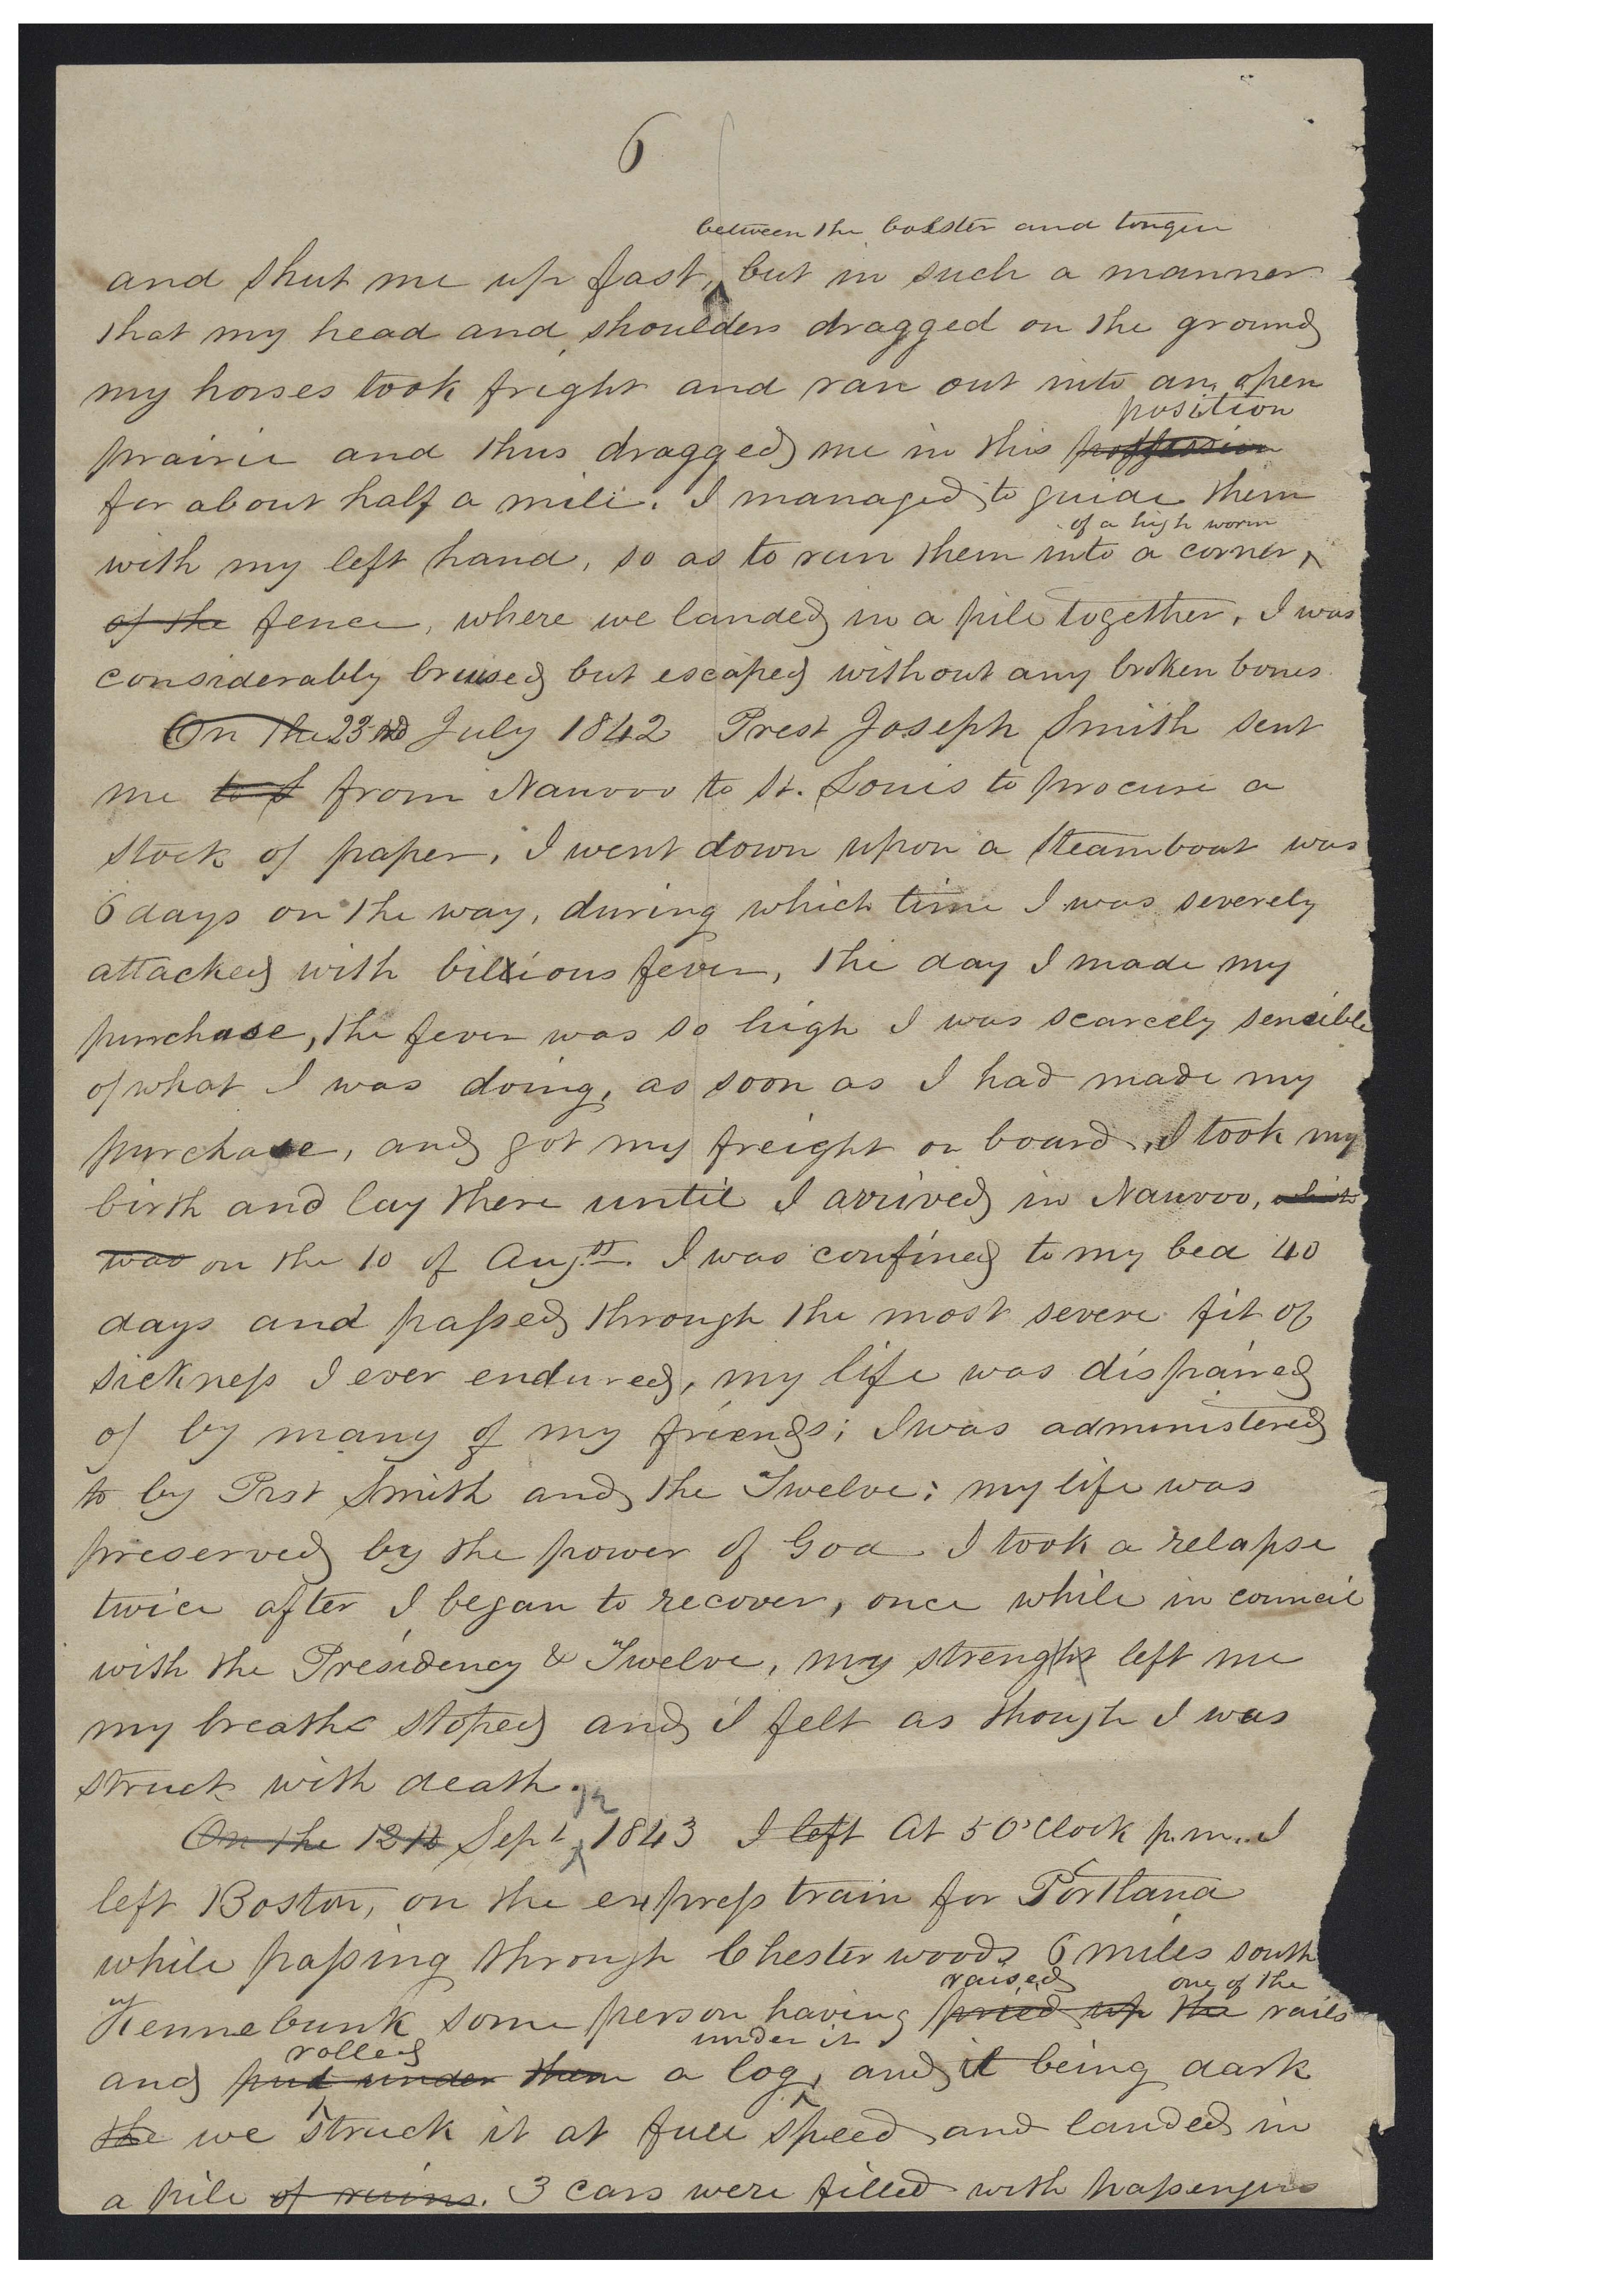 6
between the bolster and tongue
and shut me up fast, but in such a manner
that my head and shoulders dragged on the ground
my horses took fright and ran out into an open
position
prairie and thus dragged me in this possession
for about half a mile. I managed to guide them
of a high worm
with my left hand, so as to run them into a corner
of the fence, where we landed in a pile together, I was
considerably bruised but escaped without any broken bones
On the 23rd July 1842 Prest Joseph Smith sent
me to S from Nauvoo to St. Louis to procure a
stock of paper, I went down upon a steamboat was
6 days on the way, during which time I was severely
attacked with billious fever, the day I made my
purchase, the fever was so high I was scarcely sensible
of what I was doing, as soon as I had made my
purchase, and got my freight on board, I took my
birth and lay there until I arrived in Nauvoo, which
was on the 10 of Augst. I was confined to my bed 40
days and passed through the most severe fit of
sickness I ever endured, my life was dispaired
of by many of my friends; I was administered
to by Prst Smith and the Twelve; my life was
preserved by the power of God I took a relapse
twice after I began to recover, once while in council
with the Presidency & Twelve, my strenght left me
my breath stoped and I felt as though I was
struck with death.
12
On the 12th Sept 1843 I left At 5 O'Clock p.m. I
left Boston, on the express train for Portland
while passing through Chester woods 6 miles south
raised one of the
of Kennebunk some person having pried up the rails
rolled under it
and put under them a log, and it being dark
the we struck it at full speed and landed in
a pile of ruins. 3 cars were filled with passengers